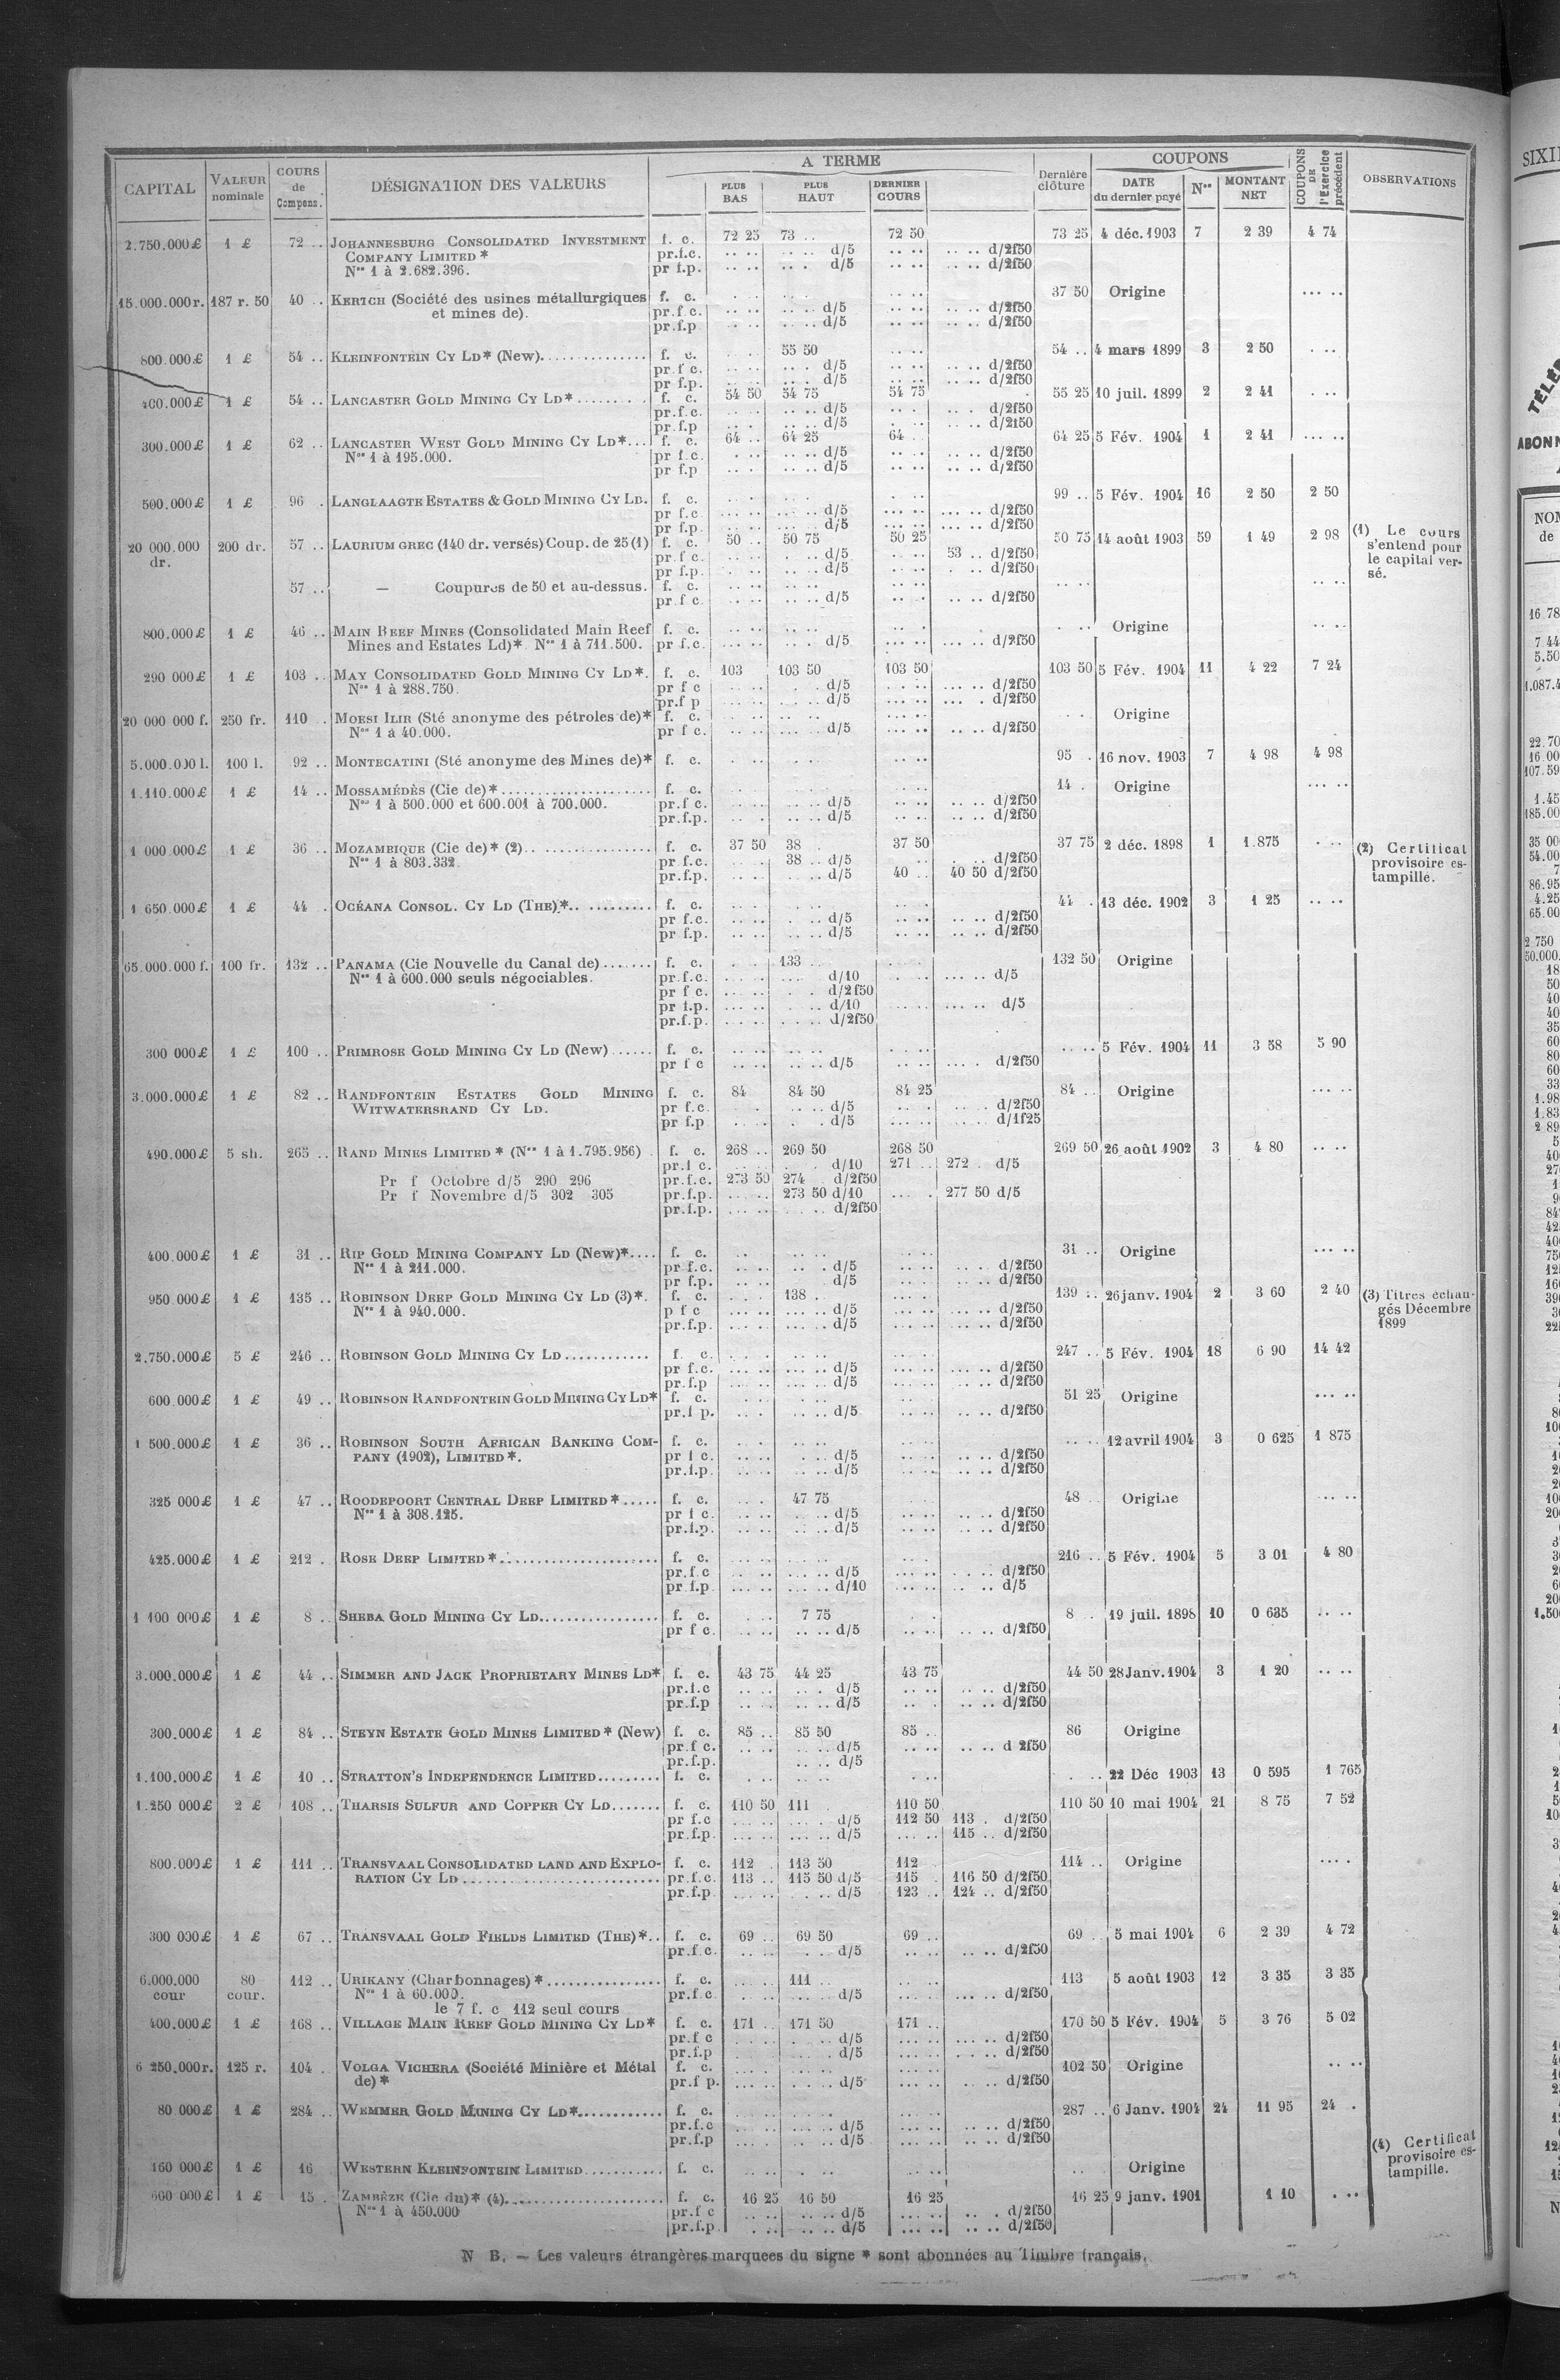 A TERME
COUPONS
CAPITAL
VALEUR nominale
COURS de Compens.
DÉSIGNATION DES VALEURS
PLUS BAS
PLUS HAUT
DERNIER COURS
Dernière clôture
DATE du dernier payé
Nos
MONTANT NET
COUPONS DE l'Exercice précédent
OBSERVATIONS
2.750.000£ 1 £ 72 .. JOHANNESBURG CONSOLIDATED INVESTMENT f. c. 72 25 73 .. 72 50 73 25 4 déc. 1903 7 2 39 4 74
COMPANY LIMITED * pr.f.c. d/5 d/2f50
Nos 1 à 2.682.396. pr f.p. d/5 d/2f50
15.000.000r. 187 r. 50 40 .. KERTCH (Société des usines métallurgiques f. c. 37 50 Origine
et mines de). pr.f c. d/5 d/2f50
pr.f.p d/5 d/2f50
800.000£ 1 £ 54 .. KLEINFONTEIN CY LD* (New) f. c. 55 50 54 .. 4 mars 1899 3 2 50
pr f c. d/5 d/2f50
pr f.p. d/5 d/2f50
400.000£ 1 £ 54 .. LANCASTER GOLD MINING CY LD* f. c. 54 50 54 75 54 75 55 25 10 juil. 1899 2 2 41
pr.f.c. d/5 d/2f50
pr.f.p d/5 d/2f50
300.000£ 1 £ 62 .. LANCASTER WEST GOLD MINING CY LD* f. c. 64 .. 64 25 64 .. 64 25 5 Fév. 1904 1 2 41
Nos 1 à 195.000. pr f.c. d/5 d/2f50
pr f.p d/5 d/2f50
500.000£ 1 £ 96 . LANGLAAGTE ESTATES & GOLD MINING CY LD. f. c. 99 .. 5 Fév. 1904 16 2 50 2 50
pr f.c d/5 d/2f50
pr f.p. d/5 d/2f50
20 000.000 dr. 200 dr. 57 .. LAURIUM GREC (140 dr. versés) Coup. de 25 (1) f. c. 50 . 50 75 50 25 50 75 14 août 1903 59 1 49 2 98 (1) Le cours s'entend pour le capital versé.
pr f c. d/5 53 .. d/2f50
pr f.p. d/5 d/2f50
57 .. — Coupures de 50 et au-dessus. f. c.
pr.f c. d/5 d/2f50
800.000£ 1 £ 46 .. MAIN REEF MINES (Consolidated Main Reef f. c. Origine
Mines and Estates Ld)* Nos 1 à 711.500. pr f.c. d/5 d/2f50
290 000£ 1 £ 103 .. MAY CONSOLIDATED GOLD MINING CY LD*. f. c. 103 103 50 103 50 103 50 5 Fév. 1904 11 4 22 7 24
Nos 1 à 288.750. pr f c d/5 d/2f50
pr.f p d/5 d/2f50
20 000 000 f. 250 fr. 110 . MORSI ILIR (Sté anonyme des pétroles de)* f. c. Origine
Nos 1 à 40.000. pr f c. d/5 d/2f50
5.000.000 l. 100 l. 92 .. MONTECATINI (Sté anonyme des Mines de)* f. c. 95 . 16 nov. 1903 7 4 98 4 98
1.110.000£ 1 £ 14 .. MOSSAMÉDÈS (Cie de)* f. c. 14 . Origine
Nos 1 à 500.000 et 600.001 à 700.000. pr.f c. d/5 d/2f50
pr.f.p. d/5 d/2f50
1 000.000£ 1 £ 36 .. MOZAMBIQUE (Cie de)* (2) f. c. 37 50 38 . 37 50 37 75 2 déc. 1898 1 1.875 (2) Certificat provisoire estampillé.
Nos 1 à 803.332. pr f.c. 38 .. d/5 d/2f50
pr.f.p. d/5 40 .. 40 50 d/2f50
1 650.000£ 1 £ 44 . OCÉANA CONSOL. CY LD (THE)* f. c. 44 . 13 déc. 1902 3 1 25
pr f.c. d/5 d/2f50
pr f.p. d/5 d/2f50
65.000.000 f. 100 fr. 132 .. PANAMA (Cie Nouvelle du Canal de) f. c. 133 132 50 Origine
Nos 1 à 600.000 seuls négociables. pr.f.c. d/10 d/5
pr f c. d/2f50
pr f.p. d/10 d/5
pr.f.p. d/2f50
300 000£ 1 £ 100 .. PRIMROSE GOLD MINING CY LD (New) f. c. 5 Fév. 1904 11 3 58 5 90
pr f c d/5 d/2f50
3.000.000£ 1 £ 82 .. RANDFONTEIN ESTATES GOLD MINING f. c. 84 84 50 84 25 84 .. Origine
WITWATERSRAND CY LD. pr f.c. d/5 d/2f50
pr f.p d/5 d/1f25
490.000£ 5 sh. 265 .. RAND MINES LIMITED * (Nos 1 à 1.795.956) f. c. 268 .. 269 50 268 50 269 50 26 août 1902 3 4 80
pr.f c. d/10 271 .. 272 . d/5
Pr f Octobre d/5 290 296 pr.f.c. 273 50 274 d/2f50
Pr f Novembre d/5 302 305 pr.f.p. 273 50 d/10 277 50 d/5
pr.f.p. d/2f50
400.000£ 1 £ 31 .. RIP GOLD MINING COMPANY LD (New)* f. c. 31 .. Origine
Nos 1 à 211.000. pr f.c. d/5 d/2f50
pr f.p. d/5 d/2f50
950 000£ 1 £ 135 .. ROBINSON DEEP GOLD MINING CY LD (3)*. f. c. 138 .. 139 .. 26 janv. 1904 2 3 60 2 40 (3) Titres échangés Décembre 1899
Nos 1 à 940.000. p f c d/5 d/2f50
pr.f.p. d/5 d/2f50
2.750.000£ 5 £ 246 .. ROBINSON GOLD MINING CY LD f. c. 247 .. 5 Fév. 1904 18 6 90 14 42
pr f.c. d/5 d/2f50
pr.f.p d/5 d/2f50
600 000£ 1 £ 49 .. ROBINSON RANDFONTEIN GOLD MINING CY LD* f. c. 51 25 Origine
pr.f p. d/5 d/2f50
1 500.000£ 1 £ 36 .. ROBINSON SOUTH AFRICAN BANKING COM- f. c. 12 avril 1904 3 0 625 1 875
PANY (1902), LIMITED *. pr f c. d/5 d/2f50
pr.f.p. d/5 d/2f50
325 000£ 1 £ 47 .. ROODEPOORT CENTRAL DEEP LIMITED * f. c. 47 75 48 Origine
Nos 1 à 308.125. pr f c. d/5 d/2f50
pr.f.p. d/5 d/2f50
425.000£ 1 £ 212 . ROSE DEEP LIMITED * f. c. 216 .. 5 Fév. 1904 5 3 01 4 80
pr.f.c d/5 d/2f50
pr.f.p d/10 d/5
1 100 000£ 1 £ 8 .. SHEBA GOLD MINING CY LD f. c. 7 75 8 . 19 juil. 1898 10 0 635
pr f c. d/5 d/2f50
3.000.000£ 1 £ 44 .. SIMMER AND JACK PROPRIETARY MINES LD* f. c. 43 75 44 25 43 75 44 50 28 Janv. 1904 3 1 20
pr.f.c d/5 d/2f50
pr.f.p d/5 d/2f50
300.000£ 1 £ 84 .. STEYN ESTATE GOLD MINES LIMITED * (New) f. c. 85 .. 85 50 85 .. 86 Origine
pr.f c. d/5 d 2f50
pr.f.p. d/5
1.100.000£ 1 £ 10 .. STRATTON'S INDEPENDENCE LIMITED f. c. 22 Déc 1903 13 0 595 1 765
1.250 000£ 2 £ 108 .. THARSIS SULFUR AND COPPER CY LD f. c. 110 50 111 110 50 110 50 10 mai 1904 21 8 75 7 52
pr f.c d/5 112 50 113 . d/2f50
pr.f.p. d/5 115 .. d/2f50
800.000£ 1 £ 111 .. TRANSVAAL CONSOLIDATED LAND AND EXPLO- f. c. 112 . 113 50 112 114 .. Origine
RATION CY LD pr.f.c. 113 .. 115 50 d/5 115 . 116 50 d/2f50
pr.f.p d/5 123 .. 124 .. d/2f50
300 000£ 1 £ 67 .. TRANSVAAL GOLD FIELDS LIMITED (THE)* f. c. 69 .. 69 50 69 ... 69 . 5 mai 1904 6 2 39 4 72
pr.f.c. d/5 d/2f50
6.000.000 cour 80 cour. 112 .. URIKANY (Charbonnages) * f. c. 111 .. 113 5 août 1903 12 3 35 3 35
Nos 1 à 60.000. pr.f.c. d/5 d/2f50
le 7 f. c 112 seul cours
400.000£ 1 £ 168 .. VILLAGE MAIN REEF GOLD MINING CY LD* f. c. 171 .. 171 50 171 .. 170 50 5 Fév. 1904 5 3 76 5 02
pr.f c d/5 d/2f50
pr.f.p d/5 d/2f50
6 250.000r. 125 r. 104 . VOLGA VICHERA (Société Minière et Métal f. c. 102 50 Origine
de) * pr.f p. d/5 d/2f50
80 000£ 1 £ 284 .. WEMMER GOLD MINING CY LD* f. c. 287 .. 6 Janv. 1904 24 11 95 24 .
pr.f.c d/5 d/2f50
pr.f.p d/5 d/2f50
160 000£ 1 £ 16 WESTERN KLEINFONTEIN LIMITED f. c. Origine
600 000£ 1 £ 15 . ZAMBÈZE (Cie du)* (4) f. c. 16 25 16 50 16 25 16 25 9 janv. 1901 1 10 (4) Certificat provisoire estampille.
Nos 1 à 450.000 pr.f c d/5 d/2f50
pr.f.p. d/5 d/2f50
N B. — Les valeurs étrangères marquees du signe * sont abonnées au Timbre français.